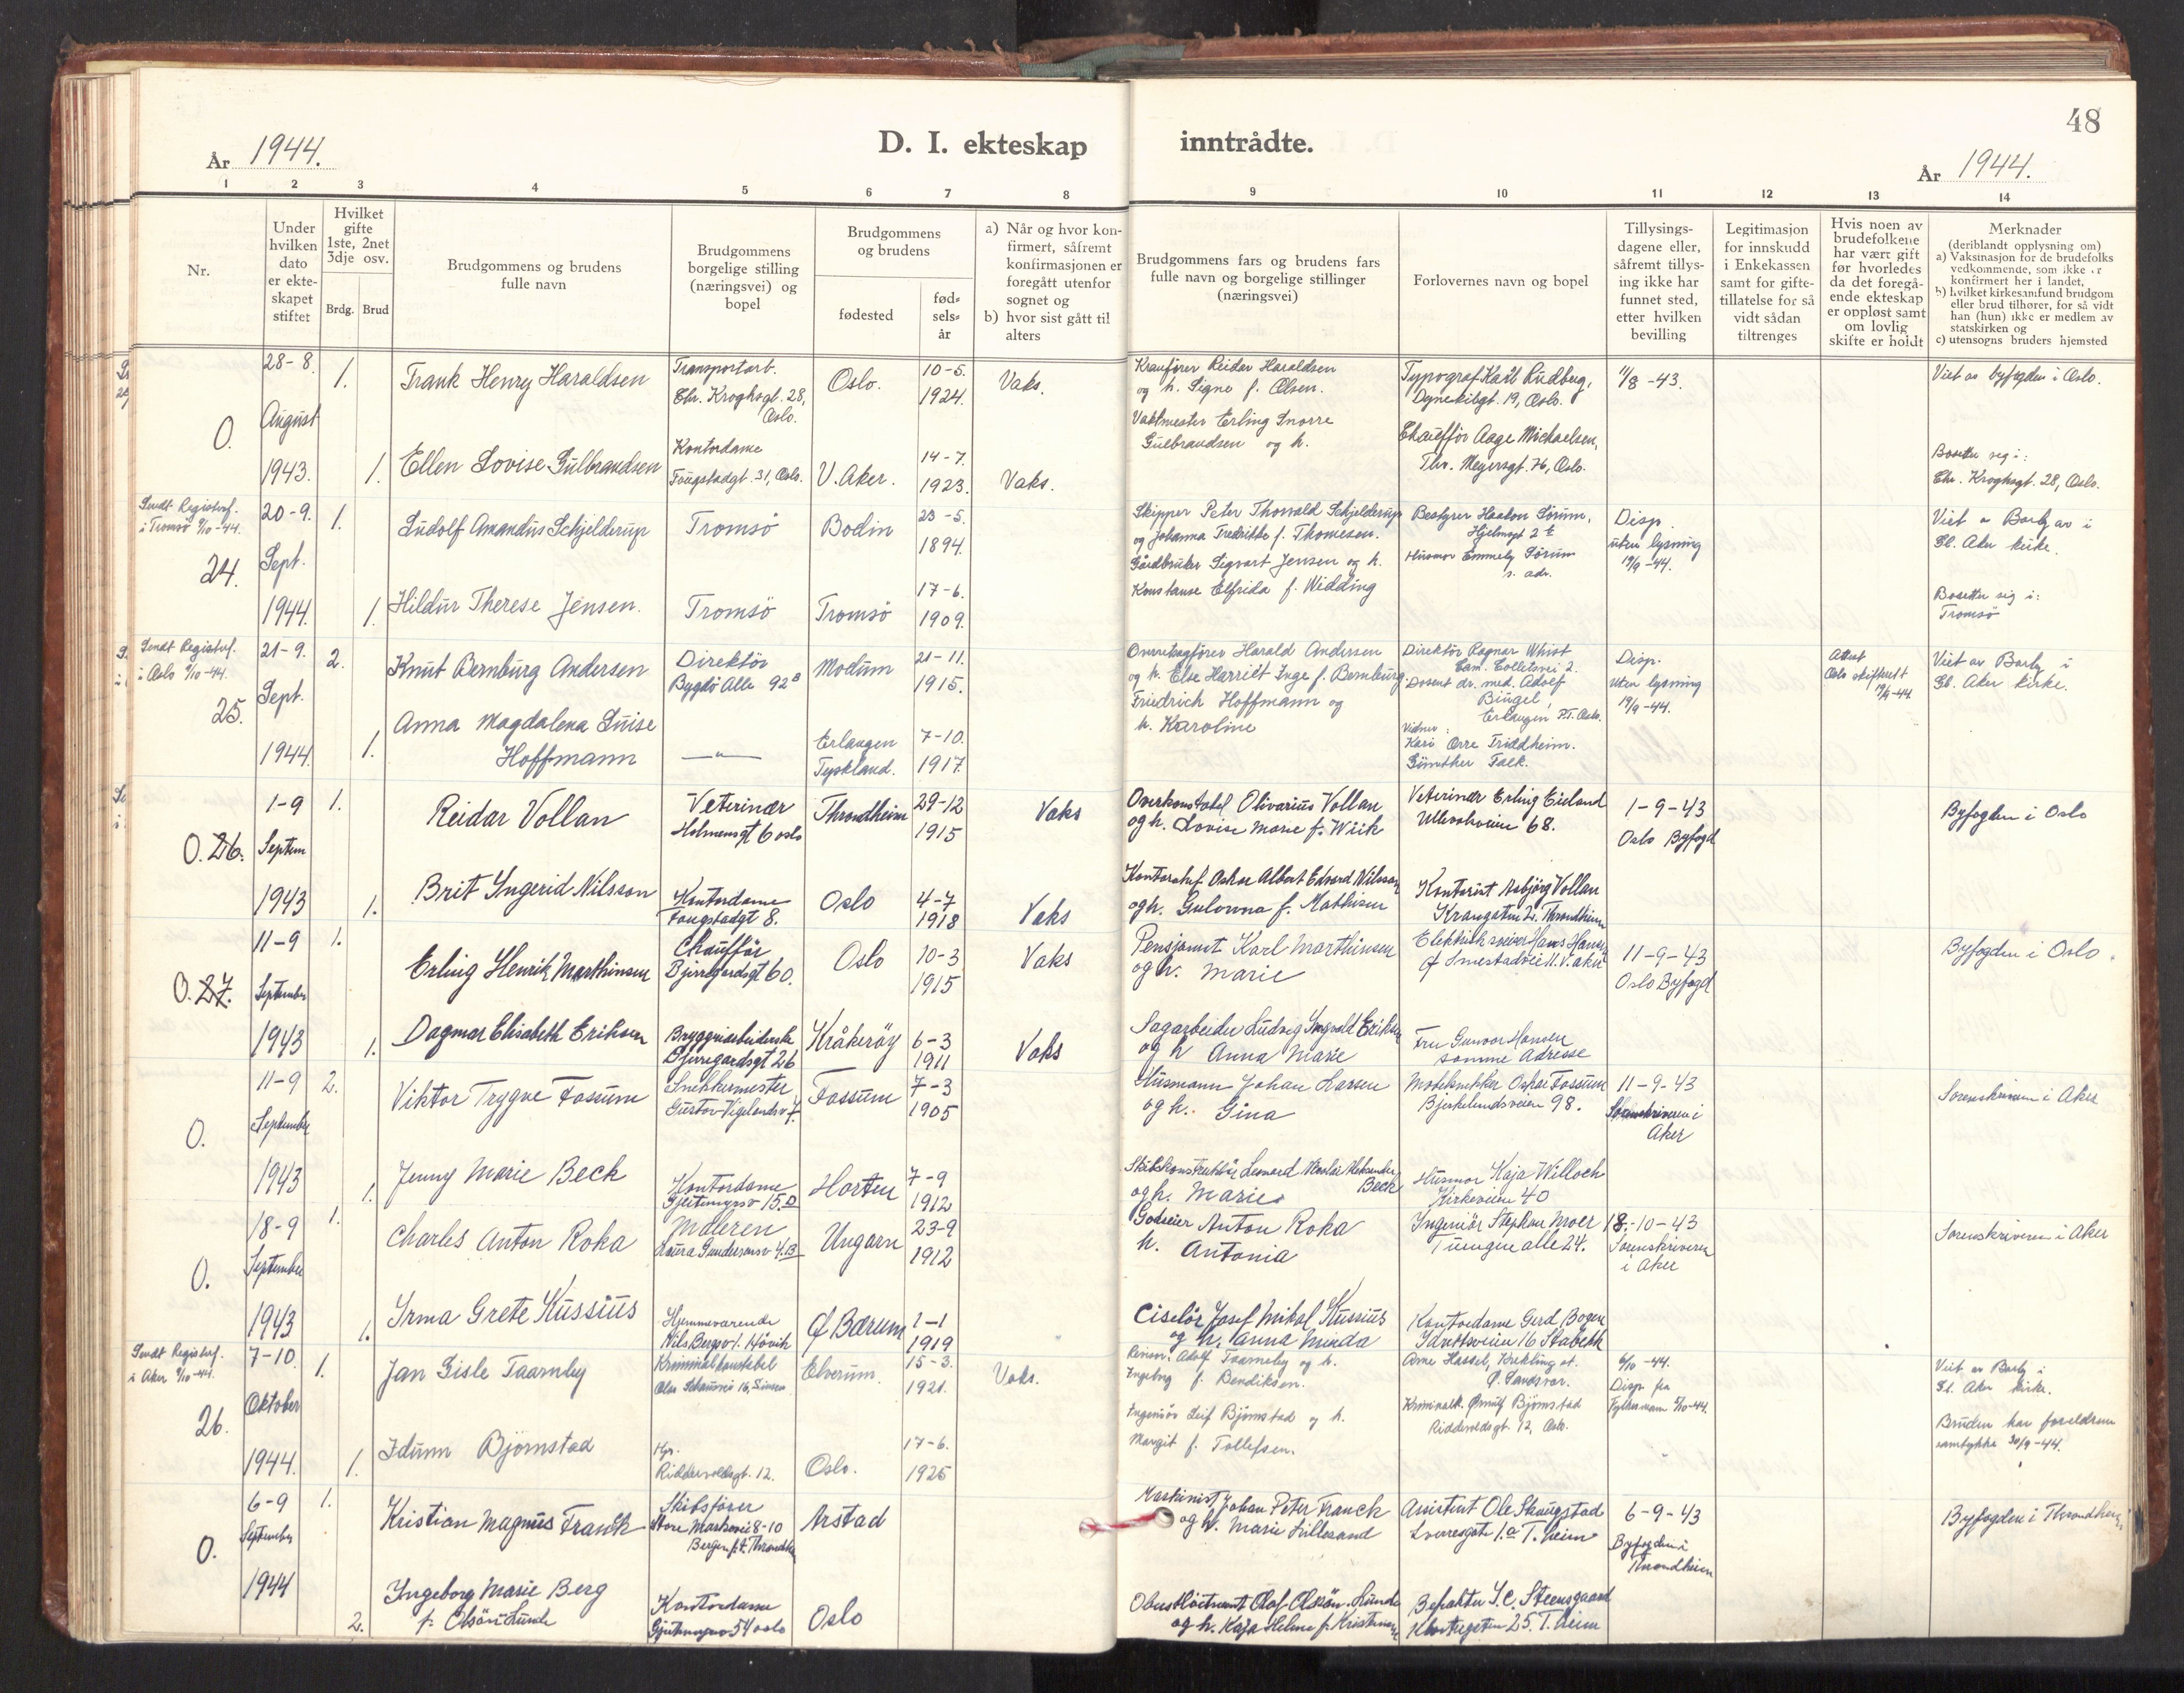 48
D. I. ekteskap inntrådte.
År 1944.
År 1944.
1 2 3 4 5 6 7 8 9 10 11 12 13 14
Nr.
Under hvilken dato er ekteskapet stiftet
Hvilket gifte 1ste, 2net 3dje osv.
Brdg. Brud
Brudgommens og brudens fulle navn
Brudgommens borgelige stilling (næringsvei) og bopel
Brudgommens og brudens
fødested
fødselsår
a) Når og hvor konfirmert, såfremt konfirmasjonen er foregått utenfor sognet og
b) hvor sist gått til alters
Brudgommens fars og brudens fars fulle navn og borgelige stillinger (næringsvei)
Forlovernes navn og bopel
Tillysingsdagene eller, såfremt tillysing ikke har funnet sted, etter hvilken bevilling
Legitimasjon for innskudd i Enkekassen samt for giftetillatelse for så vidt sådan tiltrenges
Hvis noen av brudefolkene har vært gift før hvorledes da det foregående ekteskap er oppløst samt om lovlig skifte er holdt
Merknader
(deriblandt opplysning om)
a) Vaksinasjon for de brudefolks vedkommende, som ikke er konfirmert her i landet,
b) hvilket kirkesamfund brudgom eller brud tilhører, for så vidt han (hun) ikke er medlem av statskirken og
c) utensogns bruders hjemsted
O.
28-8.
August
1943.
1.
Frank Henry Haraldsen
Transportarb.
Chr. Kroghsgt. 28,
Oslo.
Oslo.
10-5.
1924.
Vaks.
Reidar Haraldsen
og h. Signe f. Olsen.
Typograf Karl Rudberg,
Dynekilgt. 19, Oslo.
11/8-43.
Viet av byfogden i Oslo.
1.
Ellen Lovise Gulbrandsen
Kontordame
Fougstadgt. 31, Oslo.
V. Aker.
14-7.
1923.
Vaks.
Vaktmester Erling Snorre
Gulbrandsen og h.
Chauffør Aage Michaelsen,
Thv. Meyersgt. 76, Oslo.
Bosetter seg i:
Chr. Kroghsgt. 28, Oslo.
Sendt Registerf.
i Tromsø 9/10-44.
24.
20-9.
Sept.
1944.
1.
Ludolf Amandus Schjelderup
Tromsø
Bodin
23-5.
1894.
Skipper Peter Thorvald Schjelderup
og Johanna Fredrikke f. Thomesen.
Bestyrer Haakon Sørum,
Hjelmsgt 2 b
Husmor Emmely Sørum
s. adr.
Disp.
uten lysning
19/9-44.
Viet av Barly av i
Gl. Aker kirke.
1.
Hildur Therese Jensen.
Tromsø
Tromsø
17-6.
1909.
Gårdbruker Sigvart Jensen og h.
Konstanse Elfrida f. Widding
Bosetter sig i:
Tromsø
Sendt Registerf.
i Oslo 9/10-44.
25.
21-9.
Sept.
1944.
2.
Knut Bernburg Andersen
Direktør
Bygdø Alle 92 B
Modum
21-11.
1915.
Overrettssagfører Harald Andersen
og h. Else Harriet Inge f. Bernburg
Direktør Ragnar Whist
Cam. Colletsvei 2.
Dosent dr. med. Adolf
Bingel,
Erlangen P.T. Oslo.
Vidner:
Kari Orre Friedheim.
Günther Falk.
Disp.
uten lysning
19/9-44.
Attest
Oslo skifterett
19/9-44.
Viet av Barly i
Gl. Aker kirke.
1.
Anna Magdalena Luise
Hoffmann
— " —
Erlangen
Tyskland.
7-10.
1917.
Friedrich Hoffmann og
h. Karoline
O. 26.
1-9
Septem
1943
1.
Reidar Vollan
Veterinær
Holmensgt 6 oslo
Throndheim
29-12
1915
Vaks
Overkonstabel Olivarius Vollan
og h. Lovise Marie f. Wiik
Veterinær Erling Eieland
Ullevolsveien 68.
1-9-43
Oslo Byfogd
Byfogden i Oslo
1.
Brit Yngerid Nilsson
Kontordame
Fougstadgt 8.
Oslo
4-7
1918
Vaks
Kontorchef Oskar Albert Edvard Nilsson
og h. Gulovna f. Mathisen
Kontorist Asbjørg Vollan
Krangaten 2. Throndheim
O. 27.
11-9
September
1943
1.
Erling Henrik Marthinsen
Chauffør
Bjerregardsgt 60.
Oslo
10-3
1915
Vaks
Pensjonist Karl Marthinsen
og h. Marie
Elektrisk sveiser Hans Hansen
Ø Smestadvei 11. V. aker
11-9-43
Oslo Byfogd
Byfogden i Oslo.
1.
Dagmar Elisabeth Eriksen
Bryggeriarbeiderske
Bjerregardsgt 26
Kråkerøy
6-3
1911
Vaks
Sagarbeider Ludvig Yngvald Eriksen
og h Anna Marie
Fru Gunvor Hansen
samme Adresse
O.
11-9
September
1943
2.
Viktor Trygve Fossum
Snekkermester
Gustav Vigelandsv 7.
Fossum
7-3
1905
Husmann Johan Larsen
og h. Gina
Modelsnekker Oskar Fossum
Bjerkelundsveien 98.
11-9-43
Sorenskriveren i
Aker
Sorenskriveren i Aker
1.
Jenny Marie Beck
Kontordame
Gjetemyrsv 15. D
Horten
7-9
1912
Skibskonstruktør Leonard Nicolai Aleksander Beck
og h. Marie.
Husmor Kaja Willoch
Kirkeveien 40
O.
18-9
September
1943
1.
Charles Anton Roka
Maleren
Laura Gundersensv 4. B
Ungarn
23-9
1912
Godseier Anton Roka
h. Antonia
Ingeniør Stephan Moer
Tuengen alle 24.
18-10-43
Sorenskriveren
i Aker
Sorenskriveren i Aker
1.
Irma Grete Kussius
Hjemmeværende
Nils Bergsv 1. Høvik
Ø Bærum
1-1
1919
Ciselør Josef Mikal Kussius
og h. Anna Minda
Kontordame Gerd Bogen
Idrettsveien 16 Stabekk
Sendt Registerf.
i Aker 9/10-44.
26.
7-10.
Oktober
1944.
1.
Jan Gisle Taarnby
Kriminalkonstabel
Olav Schousvei 16, Sinsen
Elverum.
15-3.
1921.
Vaks.
Revisor Adolf Taarneby og h.
Ingeborg f. Bendiksen.
Arne Hassel, Krekling st.
Ø. Sandsvær.
6/10-44.
Disp. fra
Fylkesmann 5/10-44.
Viet av Barly i
Gl. Aker kirke.
Bruden har foreldrenes
samtykke 30/9-44.
1.
Idunn Bjørnstad
Hjv.
Riddervoldsgt. 12.
Oslo.
17-6.
1925
Ingeniør Leif Bjørnstad og h.
Margit f. Tollefsen.
Kriminalk. Ørnulf Bjørnstad
Riddervoldsgt. 12, Oslo.
O.
6-9
September
1944
1.
Kristian Magnus Franck
Skibsfører
Store Markevei 8-10
Bergen p.t. Throndhm
Arstad
Maskinist Johan Peter Franck
og h. Marie Lillesand
Assistent Ole Skaugstad
Sverresgate 1. a T. heim
6-9-43
Byfogden i
Throndheim
Byfogden i Throndheim
2.
Ingeborg Marie Berg
f. Olsøn-Lunde
Kontordame
Gjetemyrsv 54 oslo
Oslo
Oberstløitnant Olaf Olsøn-Lunde
og h. Kaja Helene f. Kristensen
S. C. Steensgaard
Klostergaten 25. T. heim